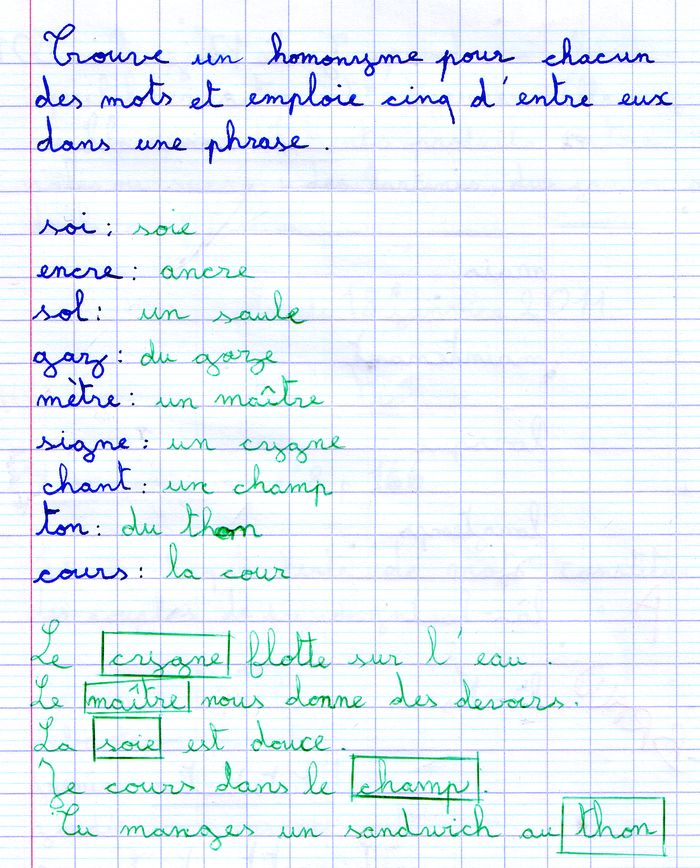 Trouve un homonyme pour chacun
des mots et emploie cinq d'entre eux
dans une phrase.
soi : soie
encre : ancre
sol : un saule
gaz : du gaze
mètre : un maître
signe : un cygne
chant : un champ
ton : du thon
cours : la cour
Le cygne flotte sur l'eau.
Le maître nous donne des devoirs.
La soie est douce.
Je cours dans le champ.
Tu manges un sandwich au thon